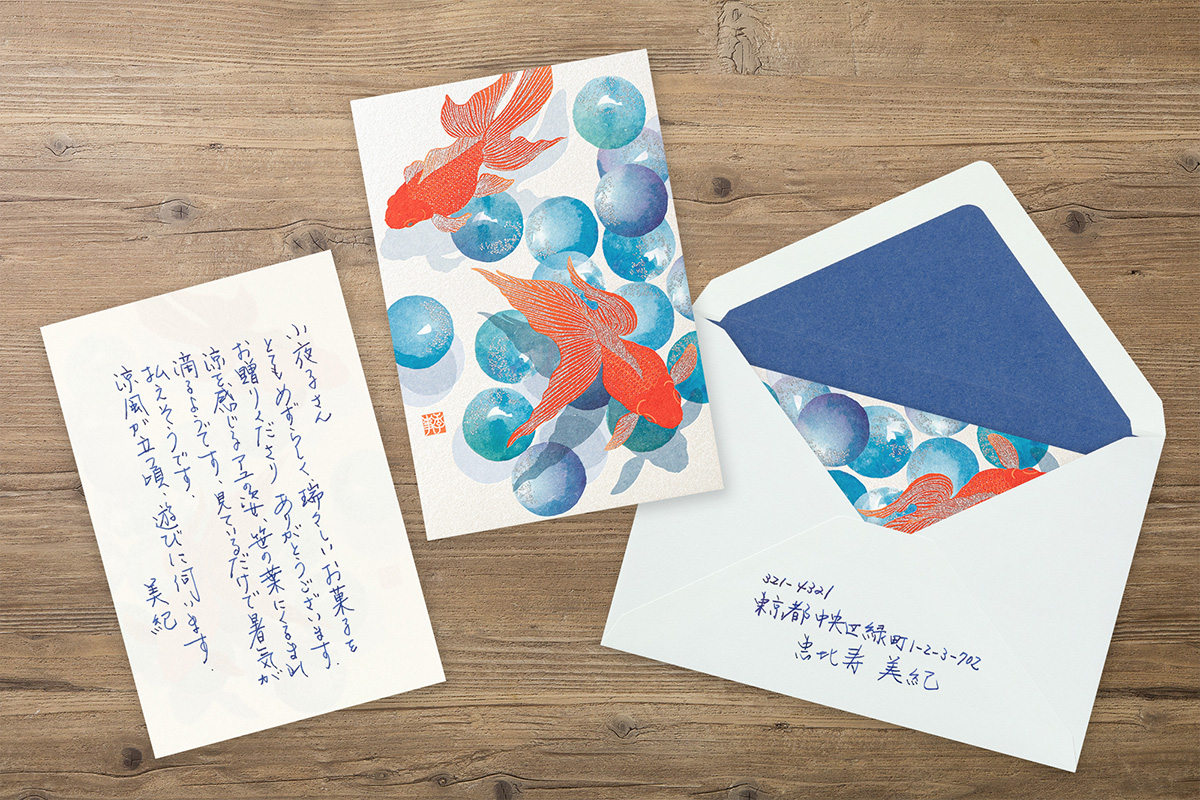 小夜子さん
とてもめずらしく、瑞々しいお菓子を
お贈りくださり ありがとうございます。
涼を感じるアユの姿、笹の葉にくるまれ
滴るようです。見ているだけで暑気が
払えそうです。
涼風が立つ頃、遊びに伺います。
美紀
321-4321
東京都中央区緑町1-2-3-702
恵比寿 美紀